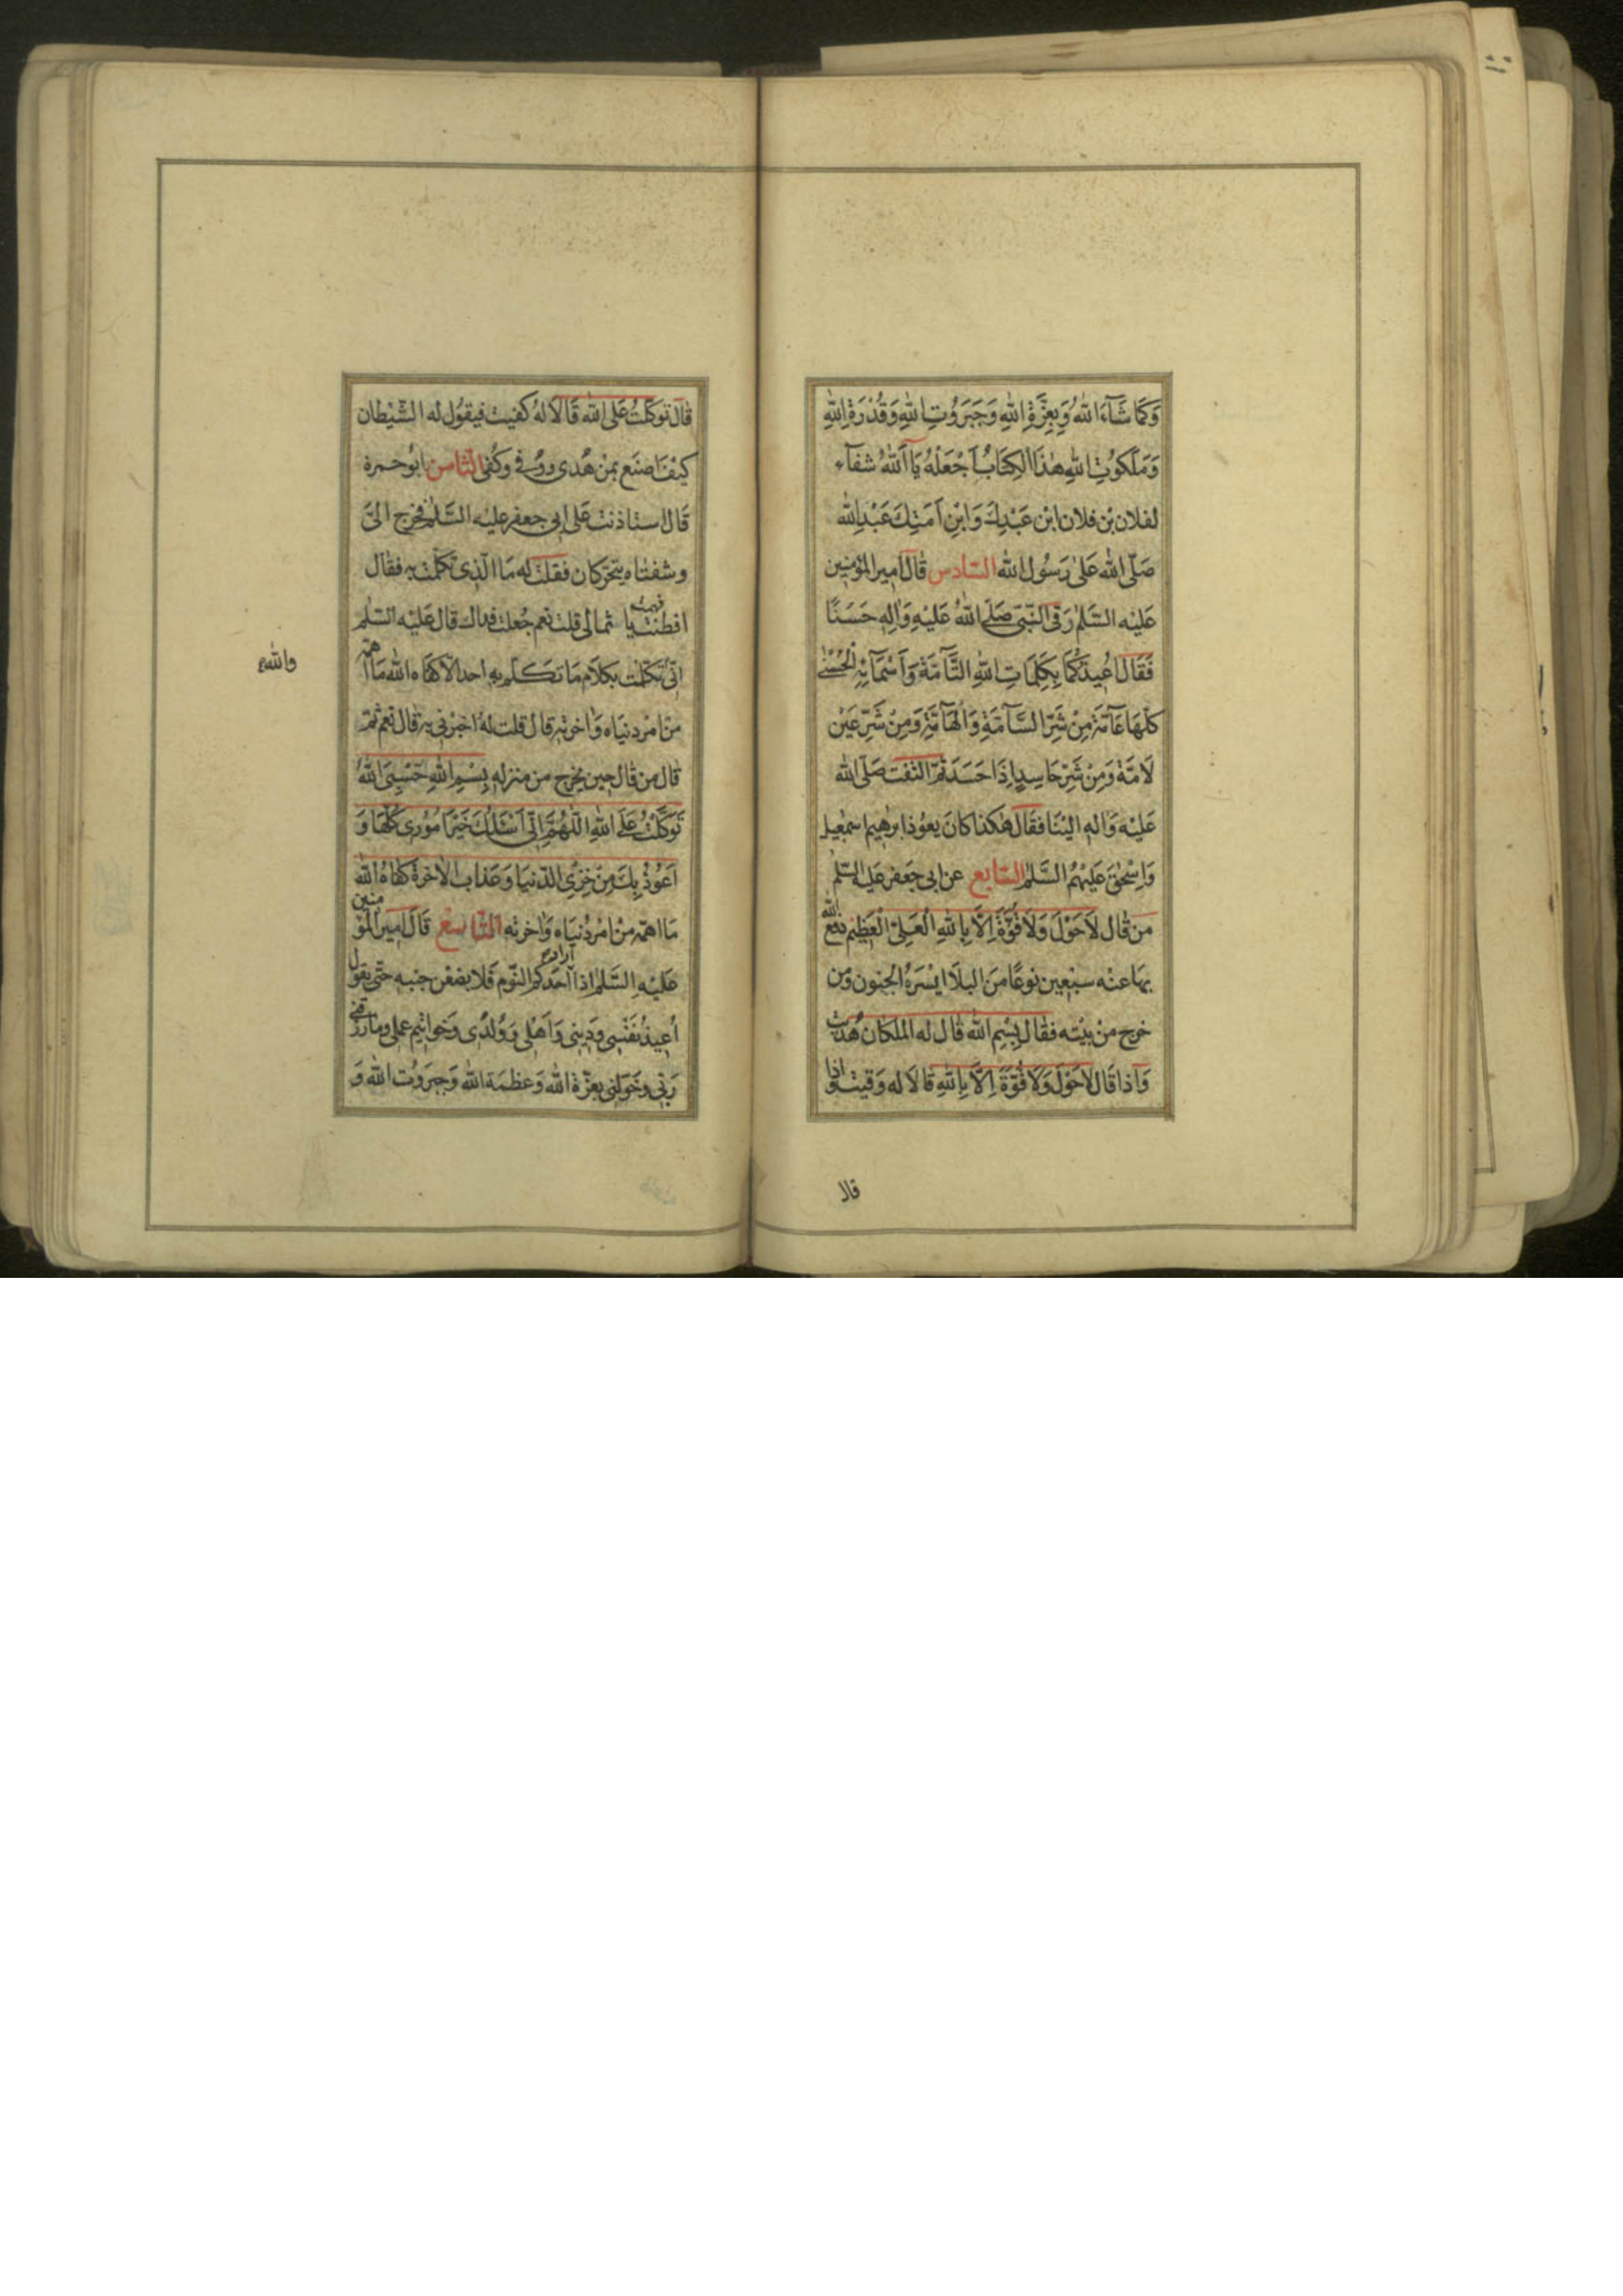 وَكَمَا شَآءَ اللّٰهُ وَبِعِزَّةِ اللّٰهِ وَجَبَرُوتِ اللّٰهِ وَقُدْرَةِ اللّٰهِ
وَمَلَكُوتِ اللّٰهِ هٰذَا الكِتَابُ اَجْعَلْهُ يَا اَللّٰهُ شفآء
لفلان بْن فلان ابْن عَبْدِكَ وَابْنِ اَمَتِكَ عَبْدِ الله
صَلَّى الله عَلىٰ رَسُول الله السّادس قَالَ اميرالمؤمنين
عَليْه السَّلم رَقى النّبيّ صَلّى اللّٰهُ عَليْهِ وَاٰلِهِ حَسَنًا
فَقَالَ اُعِيذُكُمَا بِكَلِمَاتِ اللّٰهِ التَّآمَّةِ وَاَسْمَآئِهِ الْحُسْنىٰ
كلّهَا عَآمَّةً مِنْ شَرِّ السَّآمَّةِ وَالْهَآمَّةِ وَمِنْ شَرِّ عَيْنٍ
لَامَّةٍ وَمِنْ شَرِّ حَاسِدٍ اِذَا حَسَدَ ثمّ التفت صَلّى الله
عَليْه وَاله اليْنَا فقَالَ هٰكذا كانَ يعوّذ ابرٰهيم اسمٰعيل
وَاِسْحٰقَ عَليْهِمُ السَّلم السّابع عن ابى جَعفر عَليه السّلم
مَن قَال لاَحَوْلَ وَلاَ قُوَّةَ اِلاَّ بِاللّٰهِ الْعَلِيِّ الْعَظيْم دفع الله
بهَا عنْه سبْعين نوعًا منَ البلَا ايْسَرهُ الجنون ومن
خرج منْ بيْته فقَال بِسْمِ الله قَال له الملكان هُديت
وَاِذا قَال لاَحَوْلَ وَلاَ قُوَّةَ اِلاَّ بِاللّٰهِ قَالاَ له وَقيت واذا
قالا
قالَ توَكّلتُ عَلى الله قَالاَ لهُ كفيت فيقوُل له الشّيْطان
كيْف اصْنَع بمنْ هُدى ووُقى وَكُفى الثّامن ابوُ حمزة
قَال استاذنت عَلى ابى جعفر عليْه السَّلم فخرج الىَّ
وشفتاه يتحرّكان فقلت له مَا الّذى تكلّمْت به فقَال
افطنْت يا ثمالى قلت نعم جُعلت فداك قال عَليْه السّلم
فهمت
انّى تكلّمْت بكلاَم مَا تكلّم به احد الاّ كفَاه الله مَا اهمّه
والله
منْ امْر دنيَاه وَاخرته قال قلت لهُ اخبرْنى به قال نعم ثمّ
قال من قَال حين يخرج من منزله بِسْمِ اللّٰهِ حَسْبِىَ اللّٰهُ
تَوَكَّلْتُ عَلَى اللّٰهِ اللّٰهُمَّ اِنّى اَسْئَلُكَ خَيْرَ اُمُورِى كُلِّهَا وَ
اَعُوْذُ بِكَ مِنْ خِزْىِ الدّنيَا وَعَذَابِ الاٰخرة كفَاهُ اللّٰه
مَا اهمّه منْ امْر دُنيَاه وَاخرته التّاسع قَال امير المؤمنين
عَليْهِ السَّلم اذا اَراد احَدكم النّوم فَلا يضعْن جنبه حتّى يقول
اُعيذُ نَفْسى وَدِينى وَاَهْلى وَوُلْدِى وَخَوٰاتيم عملى وما رزقنى
رَبّى وخَوّلنى بعزّة الله وَعظمَة الله وَجبَرَوُت الله وَ